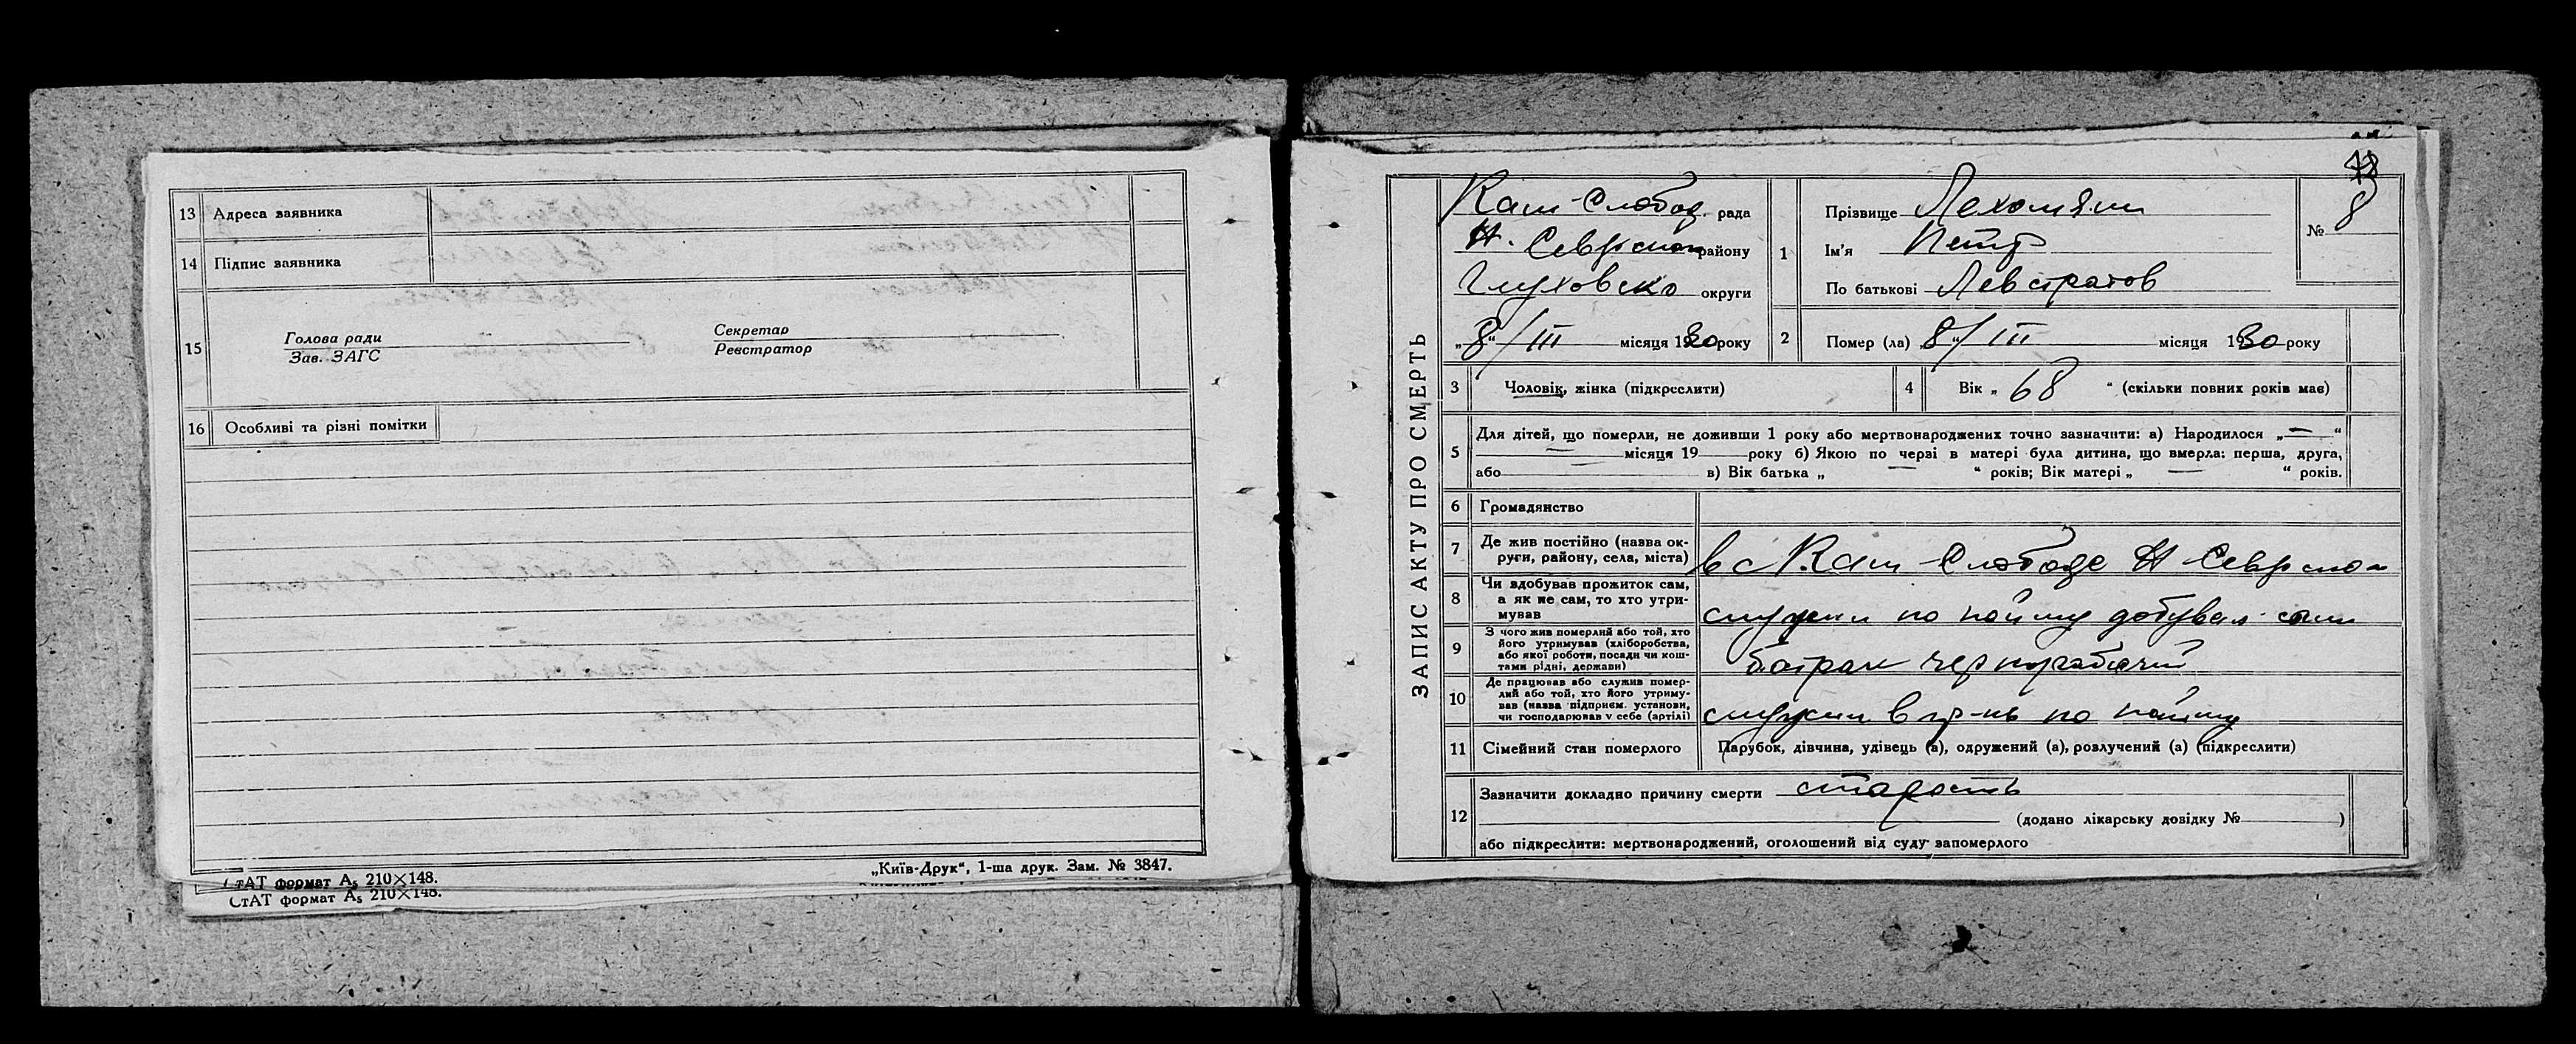 13 Адреса заявника
14 Підпис заявника
15 Голова ради
Зав. ЗАГС
Секретар
Реєстратор
16 Особливі та різні помітки
„Київ-Друк“, 1-ша друк. Зам. № 3847.
СтАТ формат А₅ 210×148.
СтАТ формат А₅ 210×148.
ЗАПИС АКТУ ПРО СМЕРТЬ
Кам-Слобод. рада
Н. Северском району
Глуховско округи
„8“/III місяця 1930 року
1 Прізвище
Ім'я Петр
По батькові Левстратов
№ 8
2 Помер (ла) „8“/III місяця 1930 року
3 Чоловік, жінка (підкреслити)
4 Вік „68“ (скільки повних років має)
5 Для дітей, що померли, не доживши 1 року або мертвонароджених точно зазначити: а) Народилося „—“
— місяця 19 року б) Якою по черзі в матері була дитина, що вмерла: перша, друга,
або — в) Вік батька „ — “ років; Вік матері „ — “ років.
6 Громадянство
7 Де жив постійно (назва ок-
руги, району, села, міста) в с Кам-Слободе Н Северском
8 Чи вдобував прожиток сам,
а як не сам, то хто утри-
мував по найму добувал сам
9 З чого жив померлий або той, хто
його утримував (хліборобства,
або якої роботи, посади чи кош-
тами рідні, держави) батрак чернорабочий
10 Де працював або служив помер-
лий або той, хто його утриму-
вав (назва підприєм. установи,
чи господарював у себе (артілі) по найму
11 Сімейний стан померлого Парубок, дівчина, удівець (а), одружений (а), розлучений (а) (підкреслити)
12 Зазначити докладно причину смерти старость
(додано лікарську довідку № )
або підкреслити: мертвонароджений, оголошений від суду запомерлого